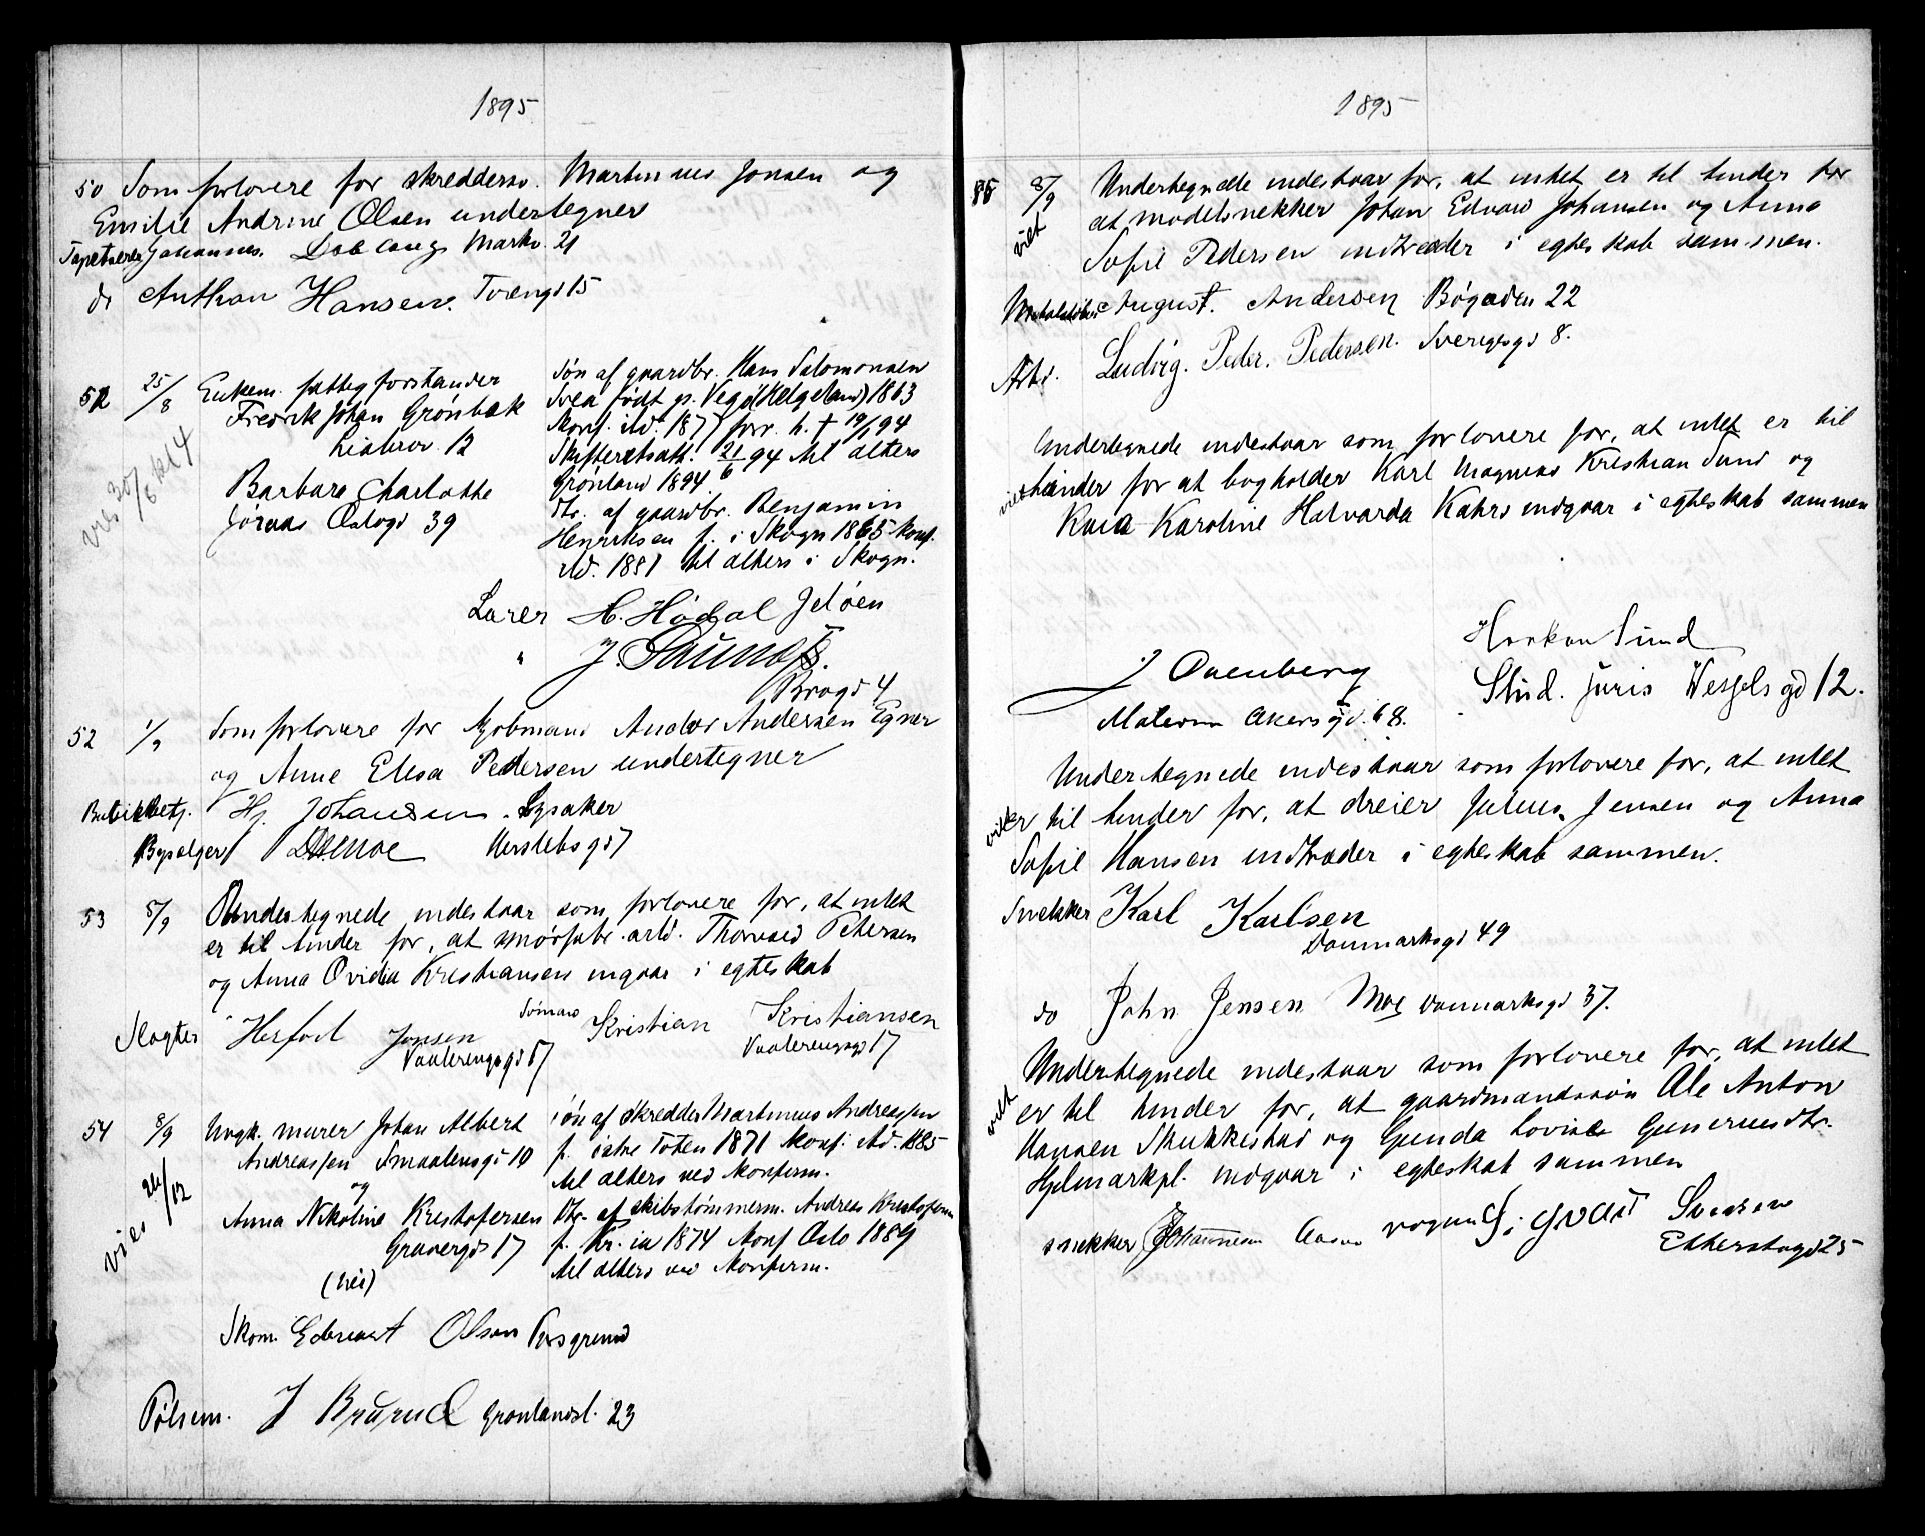 1895
50 Som forlovere for skredders. Martinus Jonsen og
Emilie Andrine Olsen undertegner
Tapetserer Johannes. Markv. 21
do Anthon Hansen. Tvengd 15
51 25/8 Enkem. fattigforstander
Fredrik Johan Grönbæk
Liabrov. 12
Barbara Charlotte
Jörnaas Oslogd 39
Søn af gaardbr. Hans Salomonsen
Svea født p. Vegö (Helgeland) 1863
Konf. ild. 1877 forr. h. † 19/1 94
Skifteretsatt. 21/6 94 til alters
Grønland 1894.
Dtr. af gaardbr. Benjamin
Henriksen f. i Skogn 1865 konf.
sted. 1881 til alters i Skogn.
viet 25/8 kl 4
Lærer H. Hödal Jelöen
" J.
Brogd 4
52 1/9 Som forlovere for kjøbmand Andor Andersen Egner
og Anne Elisa Pedersen undertegner
Butikbetj. Hj. Johansen. Lysaker
Bysælger Herslebsgd 7
53 5/9 Undertegnede indestaar som forlovere for, at intet
er til hinder for, at smörfabr. arbd. Thorvald Petersen
og Anna Ovidia Kristiansen ingaar i egteskab
Slagter Herfod Jonsen Sömand Kristian Kristiansen
Vaalerengsgd 17 Vaalerengsgd 17
54 8/9 Ungk. murer Johan Albert
Andreassen Smaalensgd 10
og
Anna Nikoline Kristofersen
Grønnergd 17
(nei)
Søn af skredder Martinus Andreassen
f. østre Toten 1871 konf. sted. 1885
til alters ved konfirm.
Dtr. af skibstømmerm. Andreas Kristofersen
f. Kr.ia 1874 konf Oslo 1889
til alters ved konfirm.
viet 26/12
Skom. Edvart Olsen Porsgrund
Pölsem. J Brurud Grønlandsl. 23
1895
55 8/9 Undertegnede indestaar for, at intet er til hinder for
at modelsnekker Johan Edvard Johansen og Anna
Sofie Pedersen indtræder i egteskab sammen.
viet
August. Andersen Bögaden 22
Arbd. Ludvig. Peder. Pedersen. Sverigesgd 8.
Undertegnede indestaar som forlovere for, at intet er til
viet hinder for at bogholder Karl Magnus Kristian Sund og
Kaia Karoline Halvarda Kahrs indgaar i egteskab sammen
Haakon Sund
Stud. juris Wesselsgd 12.
J Ovenberg
Akersgd. 68.
Undertegnede indestaar som forlovere for, at intet
viet er til hinder for, at dreier Julius Jensen og Anna
Sofie Hansen indtræder i egteskab sammen.
Snekker Karl Karlsen
Danmarksgd 49
do John Jensen Moe Danmarksgd 37.
Undertegnede indestaar som forlovere for, at intet
viet er til hinder for, at gaardmandssön Ole Anton
Hansen Skukkestad og Gunda Lovise Gunerusdtr.
Hjelmarkpl. indgaar i egteskab sammen
snekker Johannesen vognm. Sigvart Svensen
Etterstadgd 25